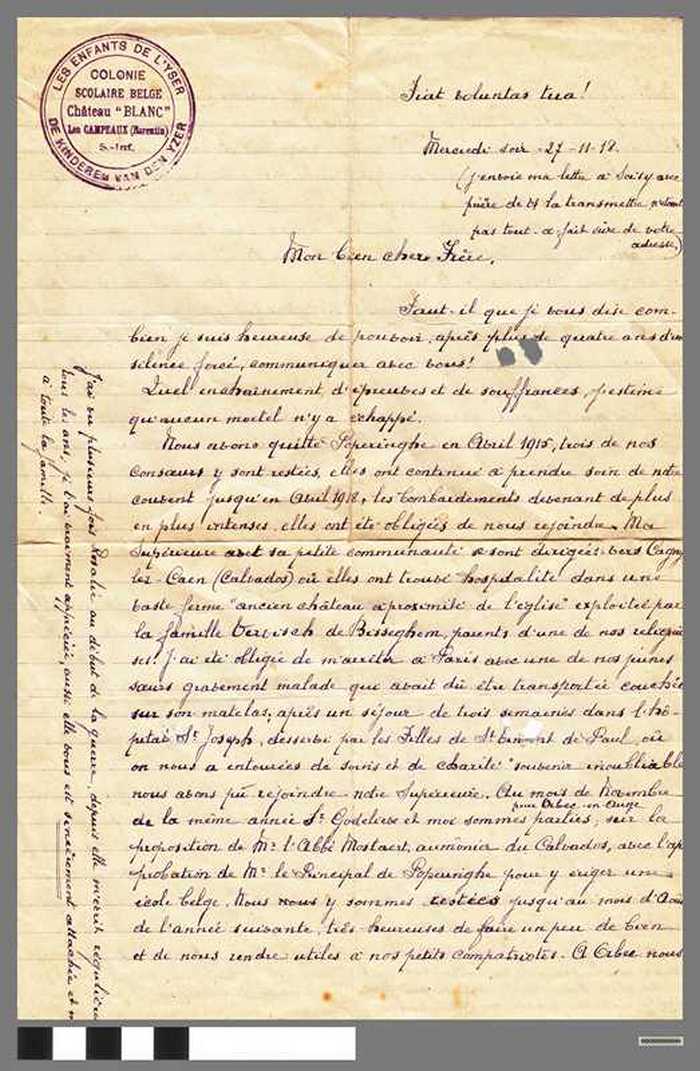 LES ENFANTS DE L'YSER
COLONIE
SCOLAIRE BELGE
Château "BLANC"
Les CAMPEAUX (Florentin)
S.-Inf.
DE KINDEREN VAN DEN YZER
Fiat voluntas tua!
Mercredi soir - 27-11-18.
(J'envoie ma lettre à Soisy avec
prière de la transmettre n'étant
pas tout-à-fait sûre de votre
adresse)
Mon bien cher Frère,
Faut-il que je vous dise com-
bien je suis heureuse de pouvoir, après plus de quatre ans d'un
silence forcé, communiquer avec vous!
Quel enchaînement d'épreuves et de souffrances, j'estime
qu'aucun mortel n'y a échappé.
Nous avons quitté Poperinghe en Avril 1915, trois de nos
consœurs y sont restées, elles ont continué à prendre soin de notre
couvent jusqu'en Avril 1918, les bombardements devenant de plus
en plus intenses, elles ont été obligées de nous rejoindre. Ma
Supérieure avec sa petite communauté se sont dirigées vers Cagny
les-Caen (Calvados) où elles ont trouvé hospitalité dans une
vaste ferme "ancien château à proximité de l'église" exploitée par
la famille Vervisch de Bisseghem, parents d'une de nos religieu
ses! J'ai été obligée de m'arrêter à Paris avec une de nos jeunes
sœurs gravement malade que avait dû être transportée couchée
sur son matelas; après un séjour de trois semaines dans l'hô-
pital St Joseph, desservi par les Filles de St Vincent de Paul, où
on nous a entourées de soins et de charité "souvenir inoubliable
nous avons pu rejoindre notre Supérieure. Au mois de Novembre
pour Orbec-en-Auge
de la même année Sr Godelieve et moi sommes parties, sur la
proposition de Mr l'Abbé Mostaert, aumônier du Calvados, avec l'ap
probation de Mr le Principal de Poperinghe pour y ériger une
école belge. Nous nous y sommes restées jusqu'au mois d'Août
de l'année suivante, très heureuses de faire un peu de bien
et de nous rendre utiles à nos petits compatriotes. A Orbec nous
J'ai vu plusieurs fois Rosalie au début de la guerre, depuis elle m'écrit régulière
tous les ans, je l'ai vraiment appréciée, aussi elle vous est sincèrement attachée et
à toute la famille.